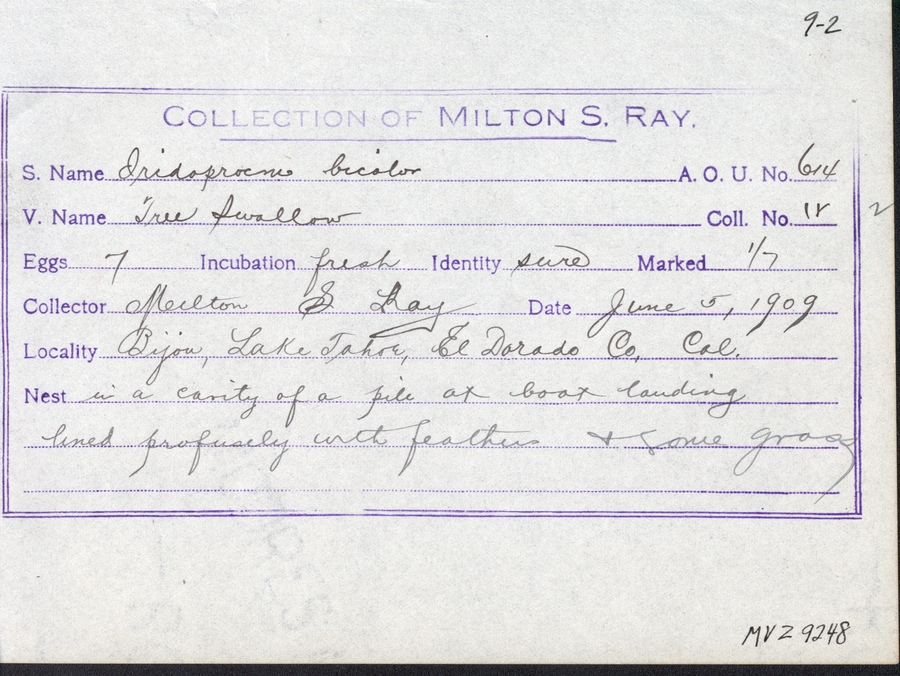 9-2
COLLECTION OF MILTON S. RAY.
S. Name Iridoprocne bicolor A. O. U. No. 614
V. Name Tree Swallow Coll. No. 2
Eggs 7 Incubation fresh Identity sure Marked 1/7
Collector Milton S Ray Date June 5, 1909
Locality Bijou, Lake Tahoe, El Dorado Co, Cal.
Nest in a cavity of a pile at boat landing
lined profusely with feathers + some grass
MVZ 9248